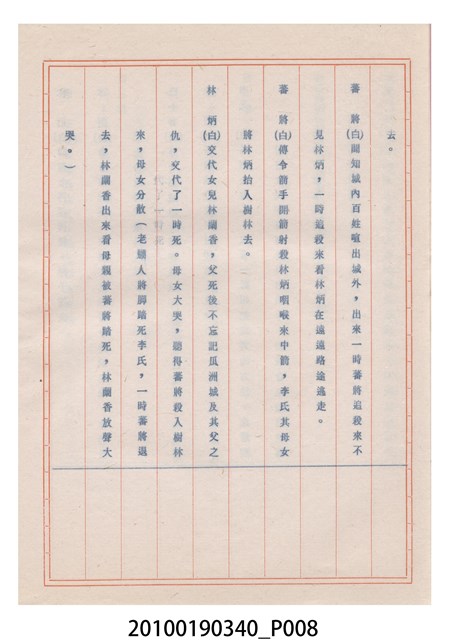 去。
蕃　將(白)聞知城內百姓喧出城外，出來一時蕃將追殺來不
見林炳，一時追殺來看林炳在遠遠路途逃走。
蕃　將(白)傳令箭手開箭射殺林炳咽喉來中箭，李氏其母女
將林炳抬入樹林去。
林　炳(白)交代女兒林蘭香，父死後不忘記瓜洲城及其父之
仇，交代了一時死。母女大哭，聽得蕃將殺入樹林
來，母女分散（老婦人將脚踏死李氏，一時蕃將退
去，林蘭香出來看母親被蕃將踏死，林蘭香放聲大
哭。）
20100190340_P008